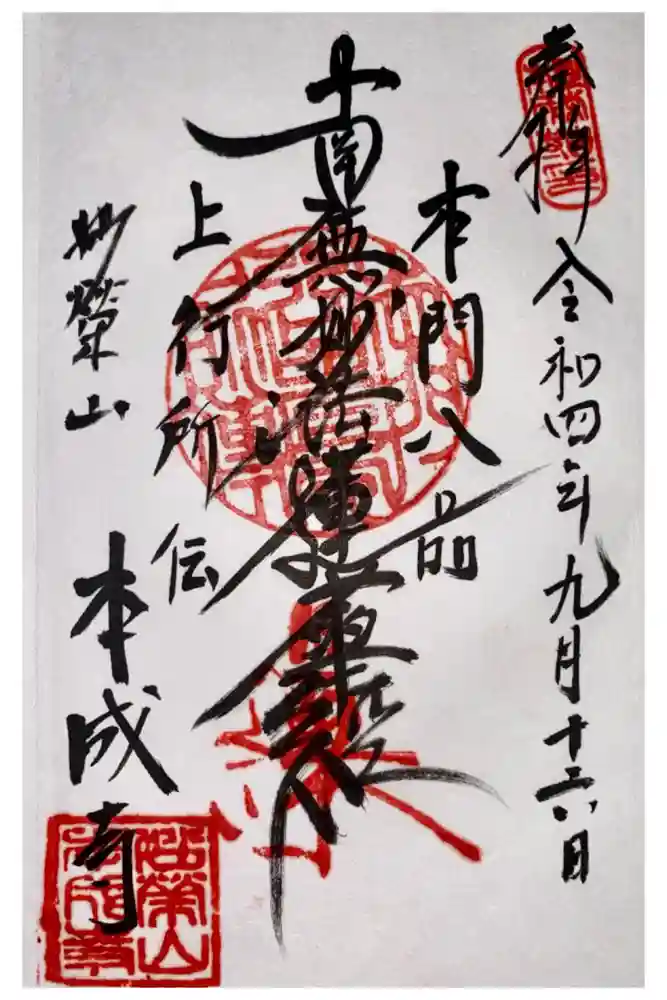 奉拝
令和四年九月十六日
本門八品
南無妙法蓮華経
上行所伝
妙榮山
本成寺
妙榮山
本成寺